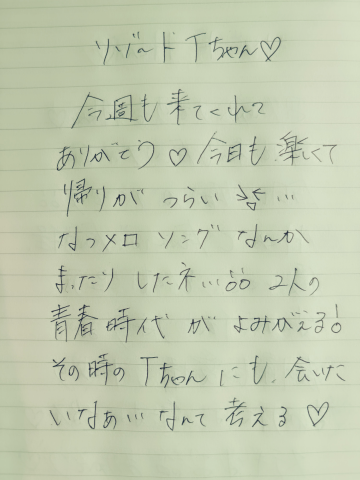 リゾード Tちゃん♡
今週も来てくれて
ありがとう♡今日も楽しくて
帰りが つらい …
なつメロ ソング なんか
まったりしたネ… 2人の
青春時代 が よみがえる!
その時の Tちゃんにも、会いた
いなぁ… なんて 考える♡